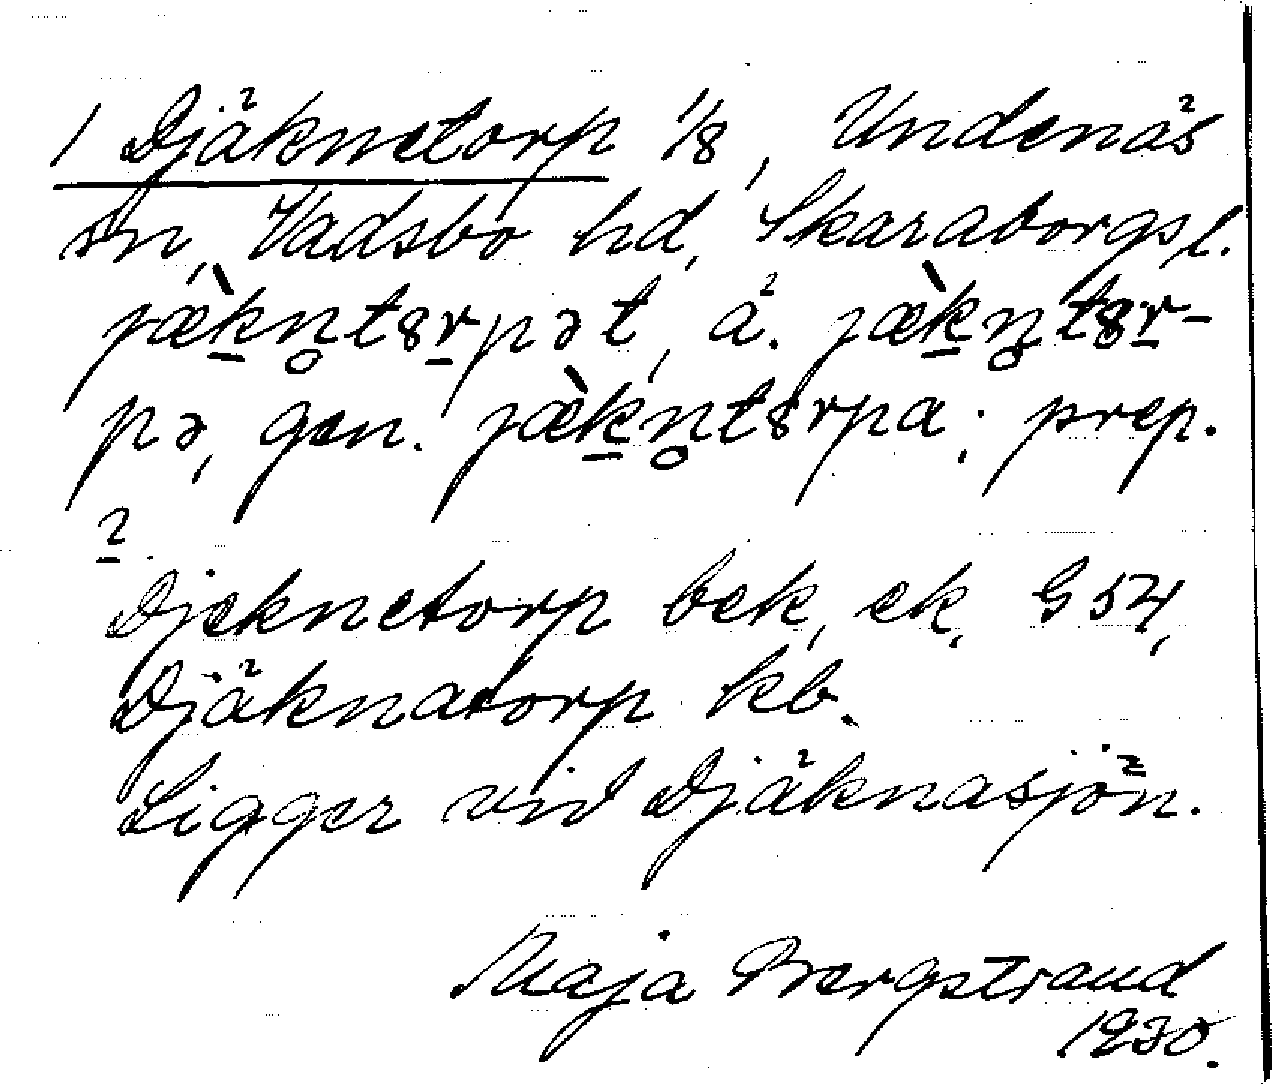 1 Djäknetorp 1/8, Undenäs
sn, Vadsbo hd, Skaraborgs l.
jæ̀kn̥tȣrpət, ä. jæ̀kn̥tȣr-
pə, gen. jæ̀kn̥tȣrpa; prep.
2
Djeknetorp bek, ek, G 54,
Djäknatorp kb.
Ligger vid Djäknasjön.
Maja Bergstrand
1930.